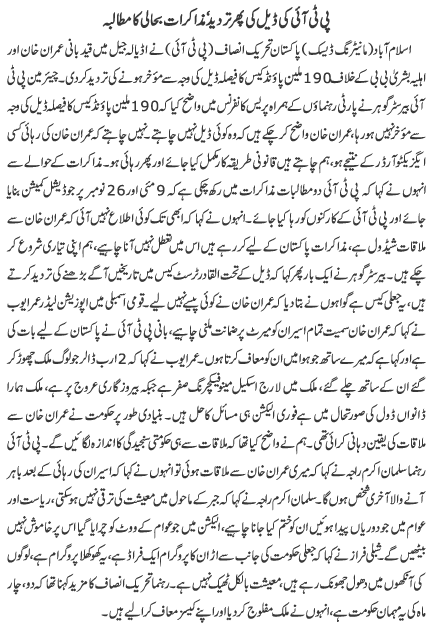 پی ٹی آئی کی ڈیل کی پھر تردید مذاکرات بحالی کا مطالبہ
اسلام آباد (مانیٹرنگ ڈیسک) پاکستان تحریک انصاف (پی ٹی آئی) نے اڈیالہ جیل میں قید بانی عمران خان اور
اہلیہ بشریٰ بی بی کے خلاف 190 ملین پاؤنڈ کیس کا فیصلہ ڈیل کی وجہ سے مؤخر ہونے کی تردید کردی۔ چیئرمین پی
ٹی آئی بیرسٹر گوہر نے پارٹی رہنماؤں کے ہمراہ پریس کانفرنس میں واضح کیا کہ 190 ملین پاؤنڈ کیس کا فیصلہ ڈیل کی وجہ
سے مؤخر نہیں ہورہا، عمران خان واضح کرچکے ہیں کہ وہ کوئی ڈیل نہیں چاہتے نہیں چاہتے کہ عمران خان کی رہائی کسی
ایگزیکٹو آرڈر کے نتیجے ہو، ہم چاہتے ہیں قانونی طریقہ کار مکمل کیا جائے اور پھر رہائی ہو۔ مذاکرات کے حوالے سے
انہوں نے کہا کہ پی ٹی آئی دو مطالبات مذاکرات میں رکھ چکی ہے کہ 9 مئی اور 26 نومبر پر جوڈیشل کمیشن بنایا
جائے اور پی ٹی آئی کے کارکنوں کو رہا کیا جائے۔ انہوں نے کہا کہ ابھی تک کوئی اطلاع نہیں آئی کہ عمران خان سے
ملاقات شیڈول ہے، مذاکرات پاکستان کے لیے کر رہے ہیں اس میں تعطل نہیں آنا چاہیے، ہم اپنی تیاری شروع کر
چکے ہیں۔ بیرسٹر گوہر نے ایک بار پھر کہا کہ ڈیل کے تحت القادر ٹرسٹ کیس میں تاریخیں آگے بڑھنے کی تردید کرتے
ہیں، یہ جعلی کیس ہے گواہوں نے بتا دیا کہ عمران خان نے کوئی پیسے نہیں لیے۔ قومی اسمبلی میں اپوزیشن لیڈر عمر ایوب
نے کہا کہ عمران خان سمیت تمام اسیران کو میرٹ پر ضمانت ملنی چاہیے، بانی پی ٹی آئی نے پاکستان کے لیے بات کی
ہے اور کہا ہے کہ میرے ساتھ جو ہوا میں ان کو معاف کرتا ہوں۔ عمر ایوب نے کہا کہ 2 ارب ڈالر جو لوگ ملک چھوڑ کر
گئے ان کے ساتھ چلے گئے، ملک میں لارج اسکیل مینوفیکچرنگ صفر ہے جبکہ بیروزگاری عروج پر ہے، ملک ہمارا
ڈانواں ڈول کی صورتحال میں ہے فوری الیکشن ہی مسائل کا حل ہیں۔ بنیادی طور پر حکومت نے عمران خان سے
ملاقات کی یقین دہانی کرائی تھی۔ ہم نے واضح کیا تھا کہ ملاقات سے ہی حکومتی سنجیدگی کا اندازہ لگائیں گے۔ پی ٹی آئی
رہنما سلمان اکرم راجہ نے کہا کہ میری عمران خان سے ملاقات ہوئی تو انہوں نے کہا کہ اسیران کی رہائی کے بعد باہر
آنے والا آخری شخص ہوں گا۔ سلمان اکرم راجہ نے کہا کہ جبر کے ماحول میں معیشت کی ترقی نہیں ہوسکتی، ریاست اور
عوام میں جو دوریاں پیدا ہوئیں ان کو ختم کیا جانا چاہیے، الیکشن میں جو عوام کے ووٹ کو چرایا گیا اس پر خاموش نہیں
بیٹھیں گے۔ شبلی فراز نے کہا کہ جعلی حکومت کی جانب سے اڑان کا پروگرام ایک فراڈ ہے، یہ کھوکھلا پروگرام ہے، لوگوں
کی آنکھوں میں دھول جھونک رہے ہیں، معیشت بالکل ٹھیک نہیں ہے۔ رہنما تحریک انصاف کا مزید کہنا تھا کہ دو، چار
ماہ کی یہ مہمان حکومت ہے، انہوں نے ملک مفلوج کردیا اور اپنے کیسز معاف کرالیے ہیں۔